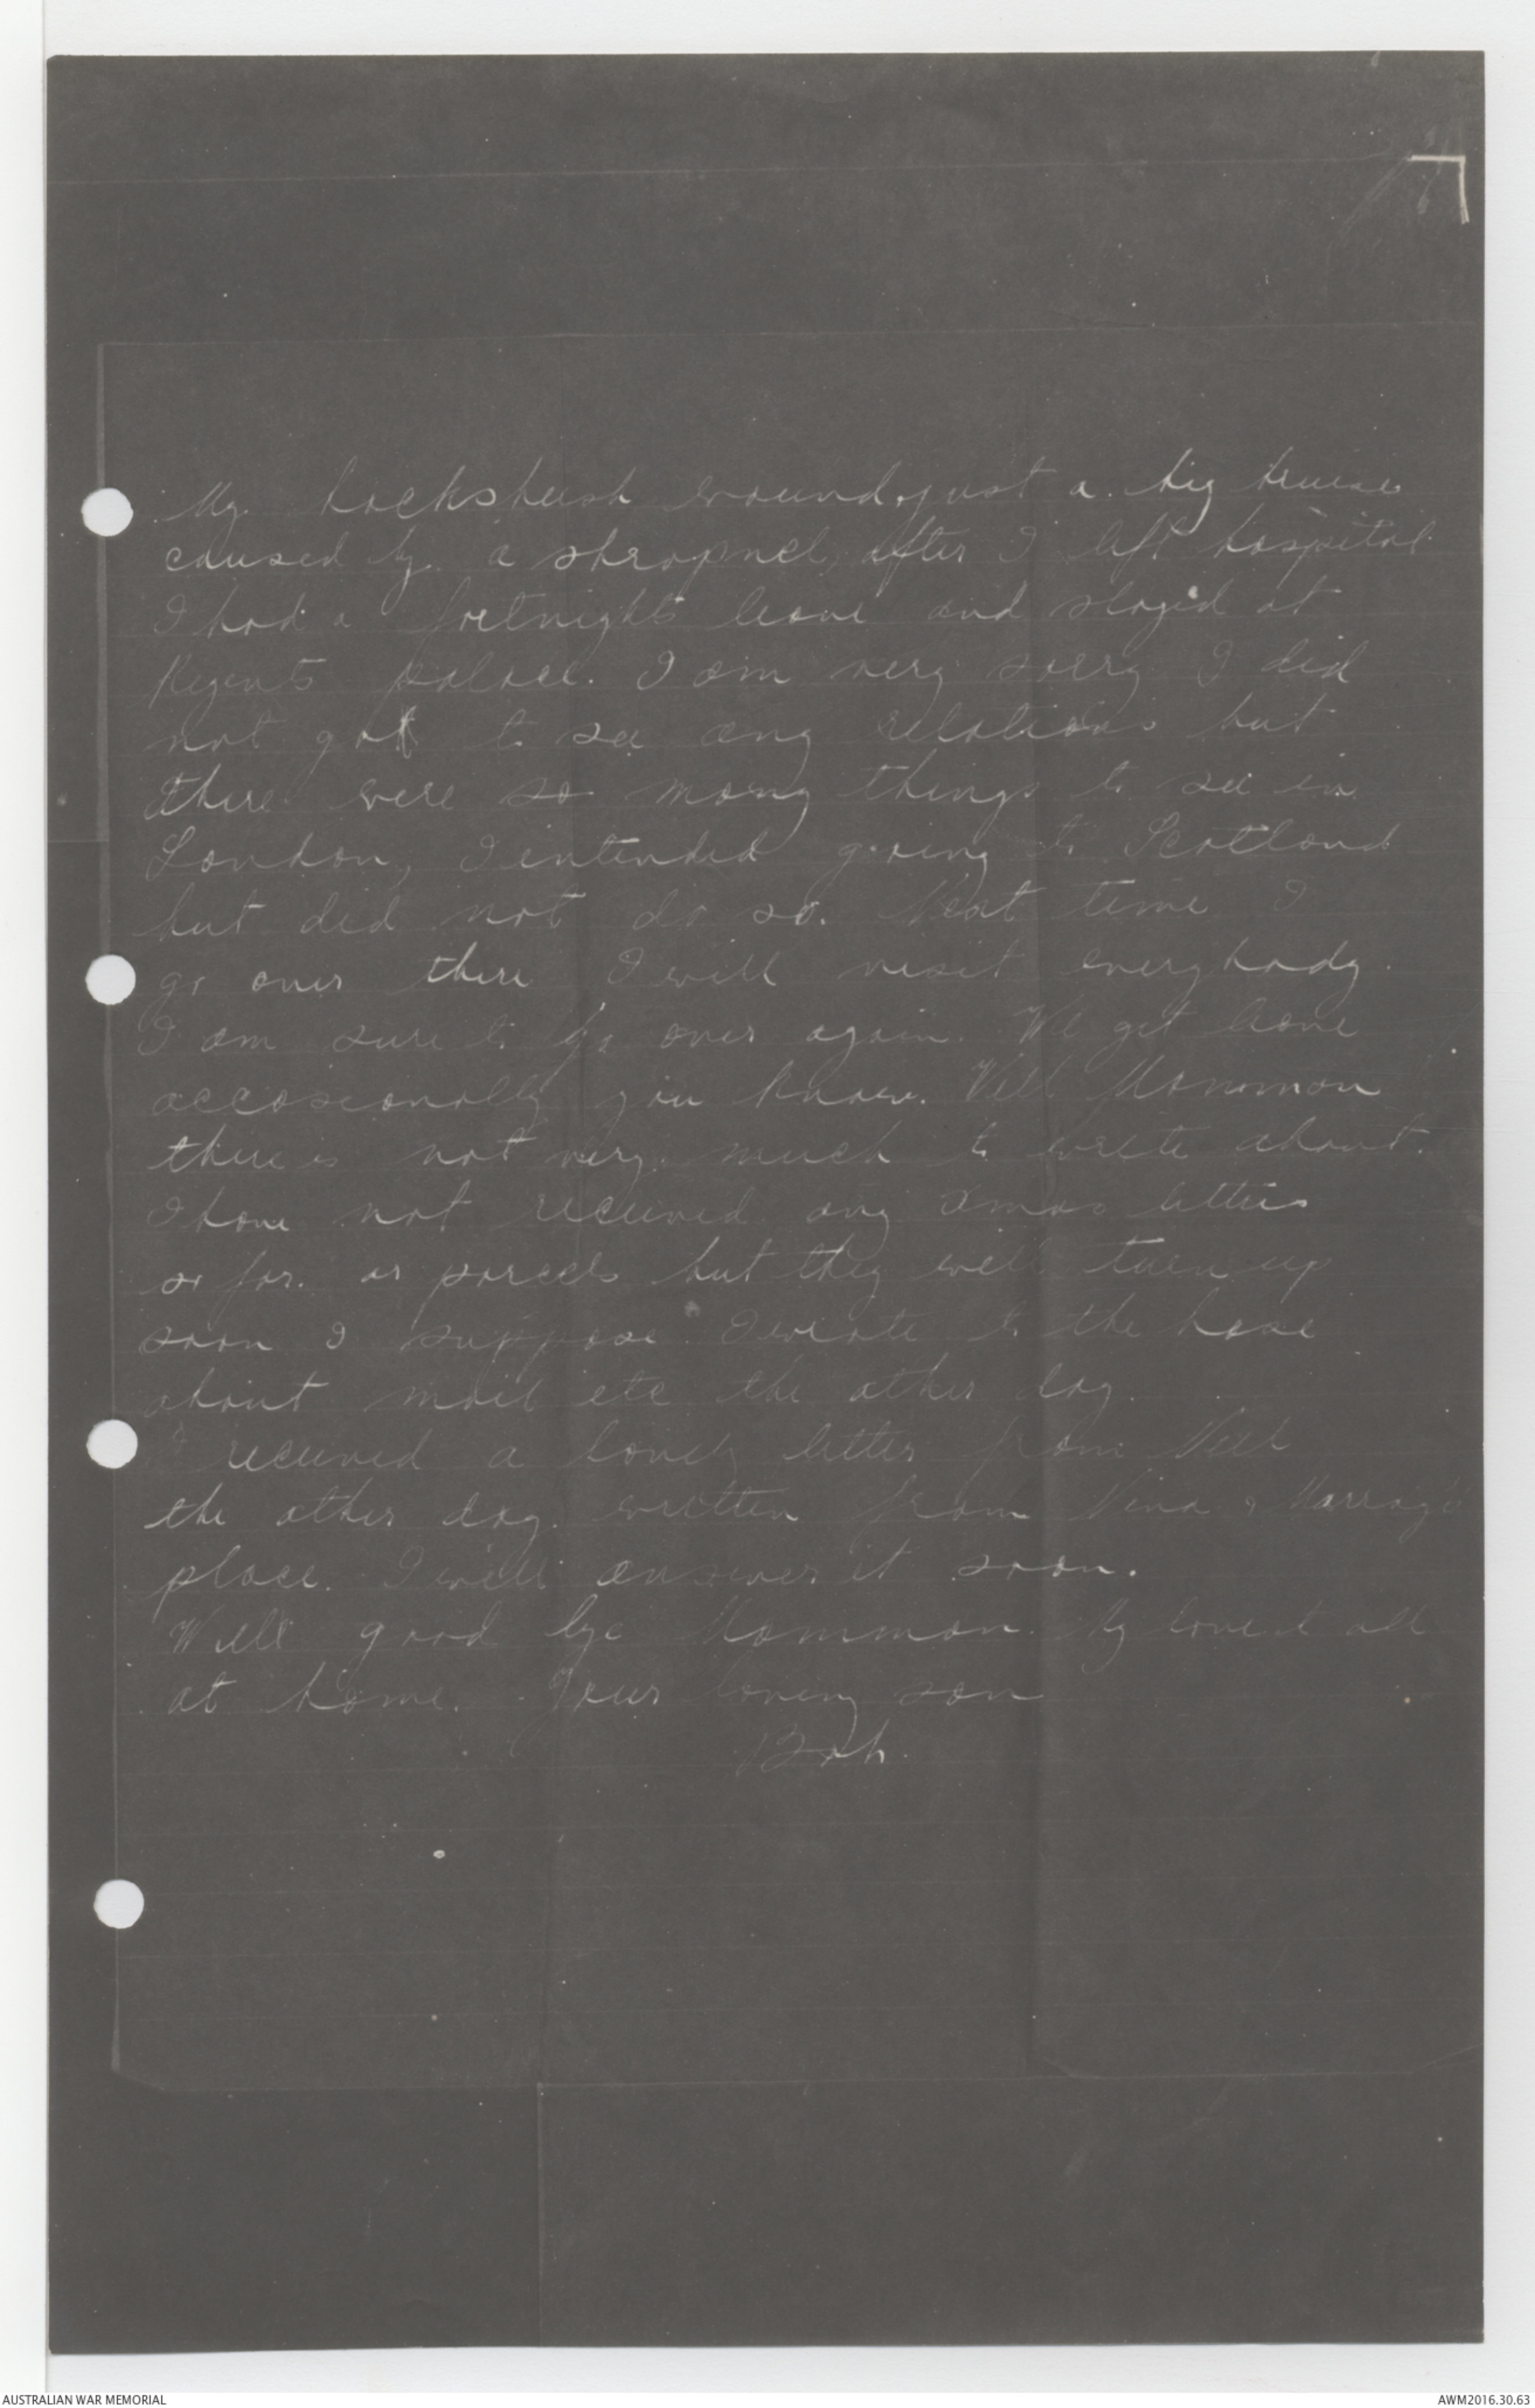 My
wound, just a big bruise
caused by a shrapnel, after I left hospital
I had a fortnights leave and stayed at
Regents palace. I am very sorry I did
not got to see any relations but
there were so many things to see in
London, I intended going to Scotland
but did not do so. Next time I
go over there I will visit everybody.
I am sure to go over again. We get leave
occasionally you know. Well Mamman
there is not very much to write about.
I have not received any xmas letters
so far. or parcels but they will turn up
soon I suppose. I wrote to the
about mail etc the other day.
I received a lovely letter from Nell
the other day. written from Nina &
place. I will answer it soon.
Well good bye Mamman. My love to all
at home. Your loving son
Bob.
AUSTRALIAN WAR MEMORIAL
AWM2016.30.63